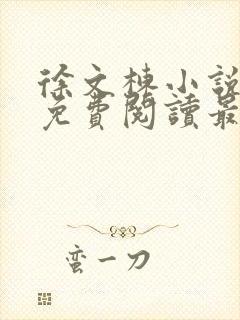 徐文棟小說
免費閱讀最
蛮一刀